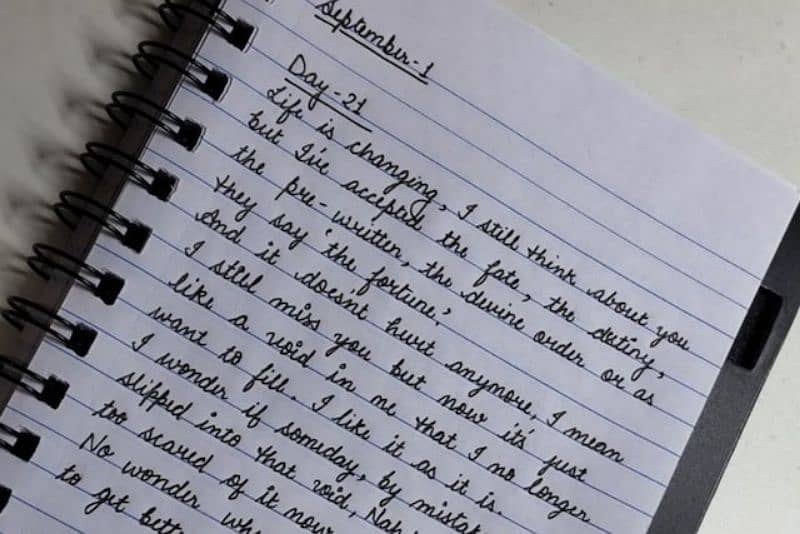 September-1
Day-21
Life is changing, I still think about you
but I've accepted the fate, the destiny,
the pre-written, the devine order or as
they say 'the fortune'.
And it doesn't hurt anymore, I mean
I still miss you but now it's just
like a void in me that I no longer
want to fill. I like it as it is.
I wonder if someday, by mistak
slipped into that void, Nah
too scared of it now
No wonder wh
to get bett